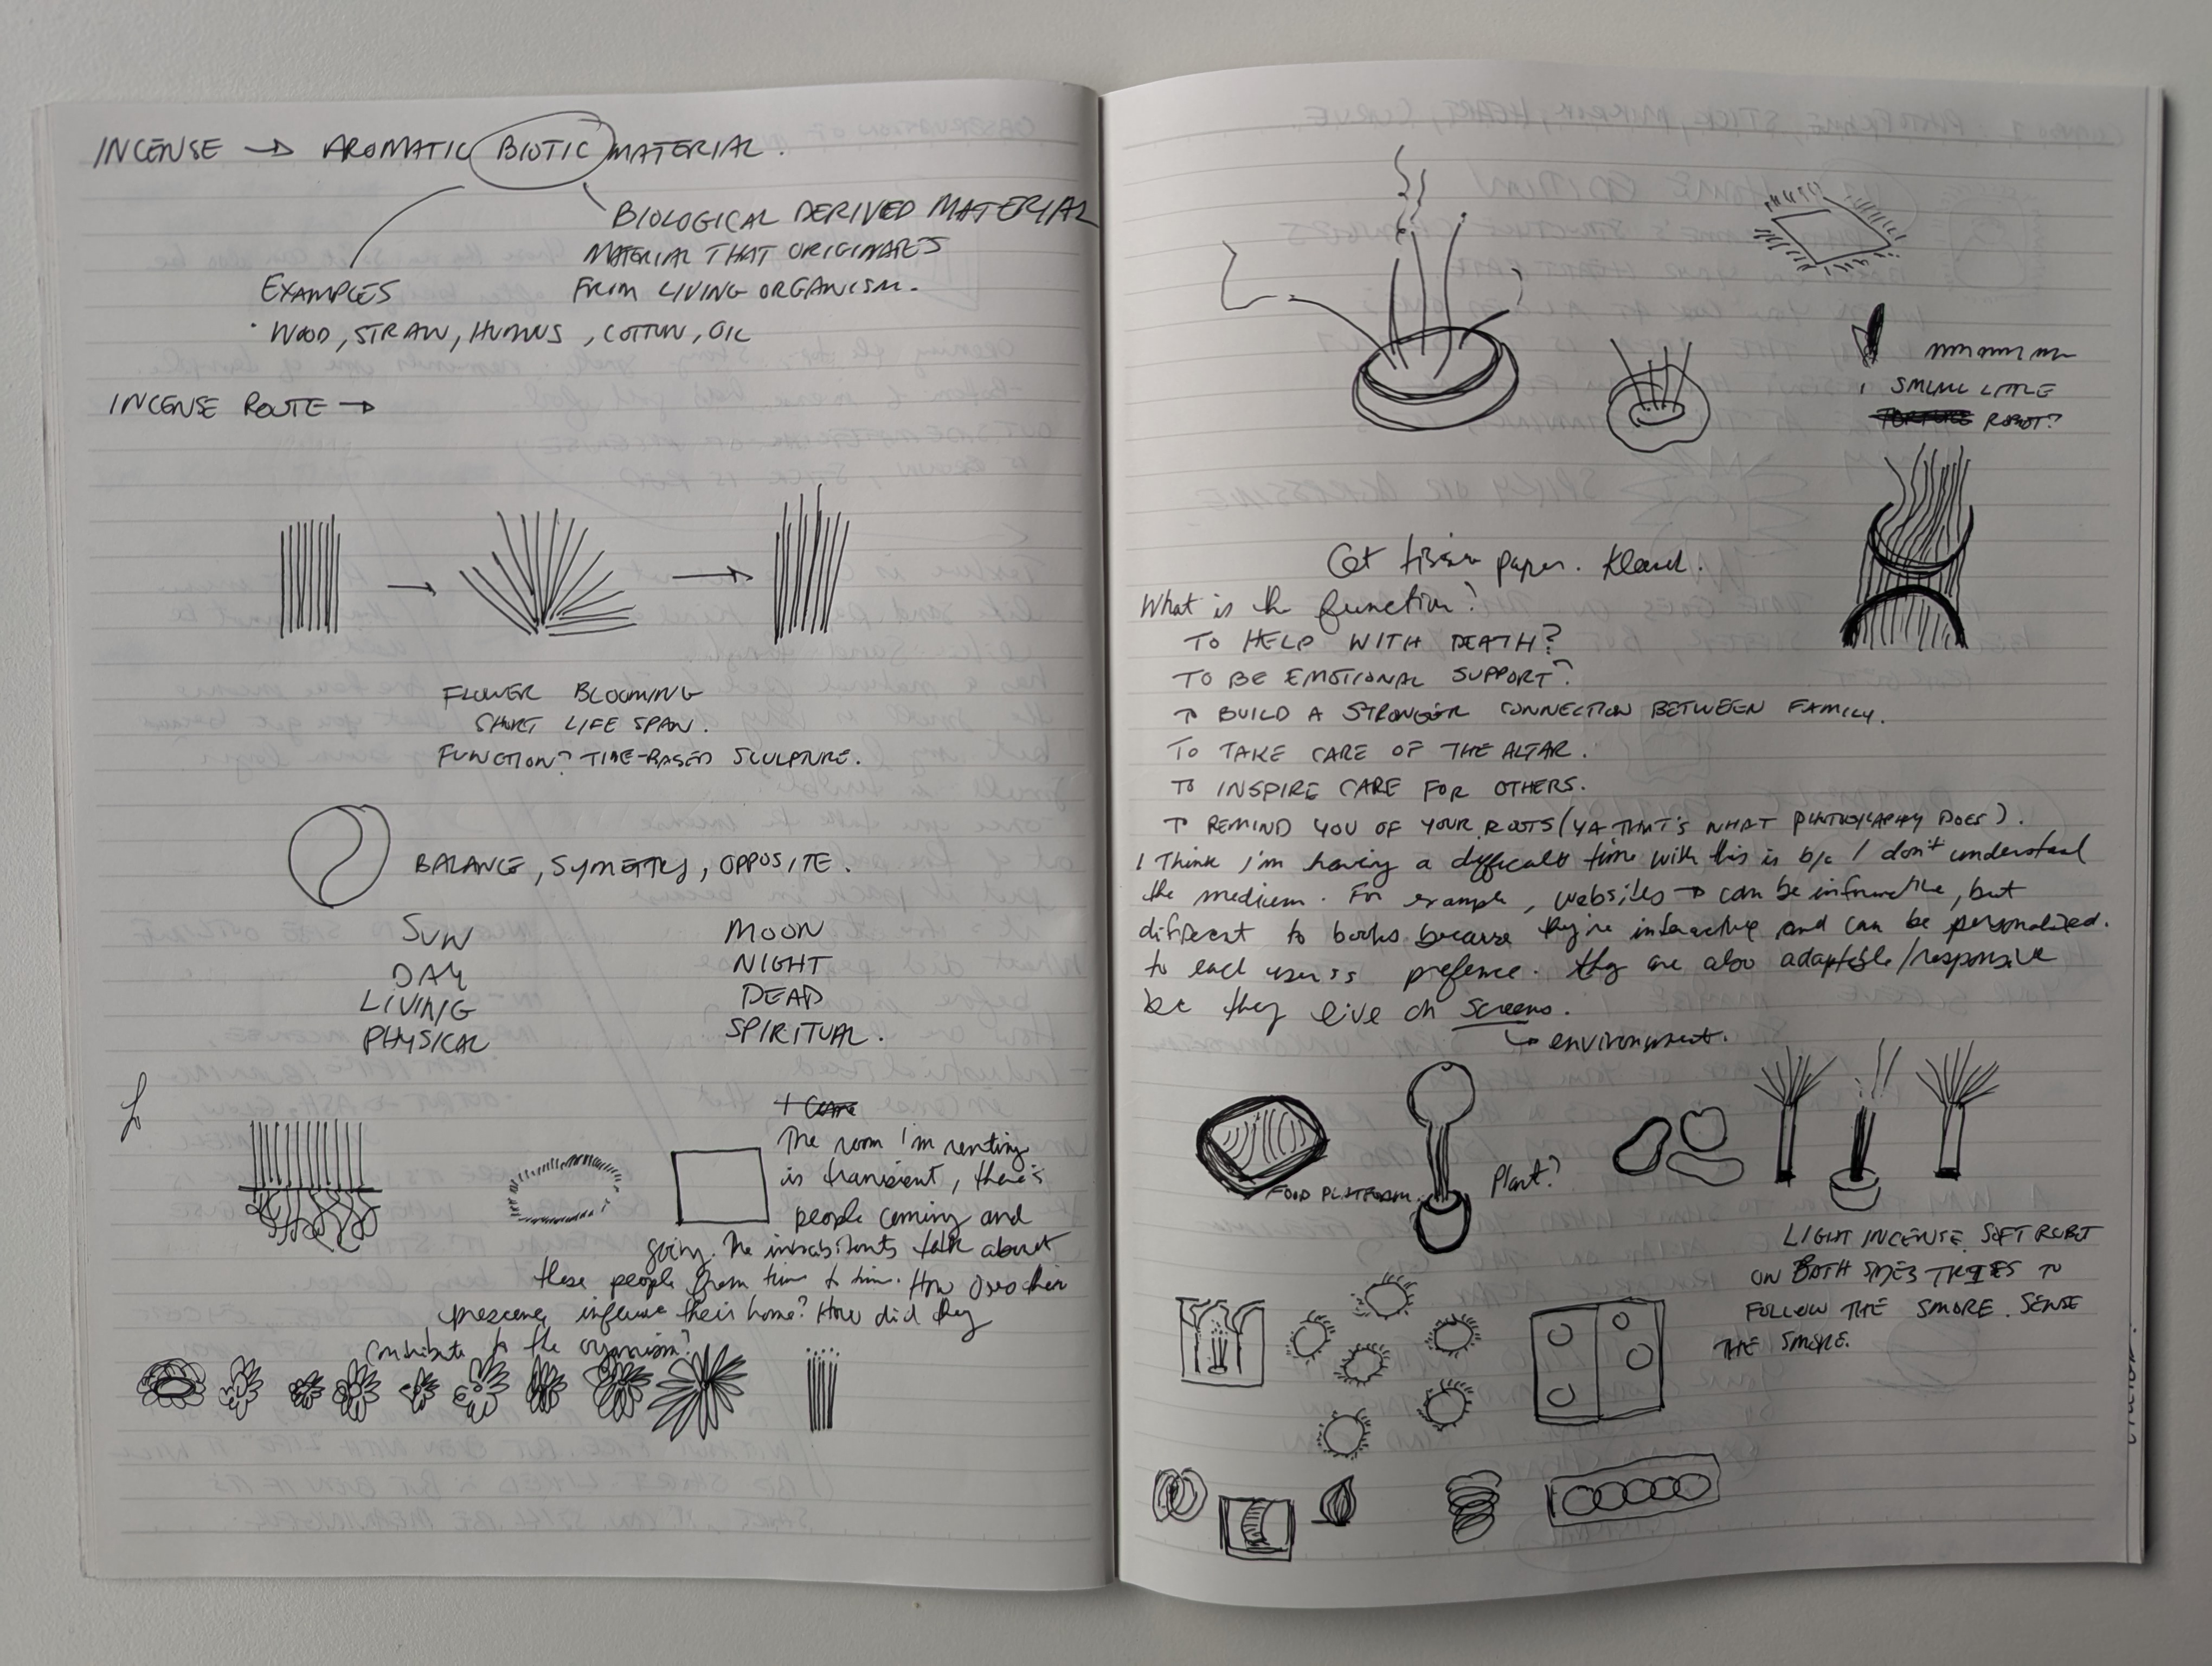 INCENSE → AROMATIC BIOTIC MATERIAL.
BIOLOGICAL DERIVED MATERIAL
MATERIAL THAT ORIGINATES
FROM LIVING ORGANISM.
EXAMPLES
· WOOD, STRAW, HUMUS, COTTON, OIL
INCENSE ROUTE →
FLOWER BLOOMING
SHORT LIFE SPAN.
FUNCTION? TIME-BASED SCULPTURE.
BALANCE, SYMETTRY, OPPOSITE.
SUN MOON
DAY NIGHT
LIVING DEAD
PHYSICAL SPIRITUAL.
The room I'm renting
is transient, there's
people coming and
going. The inhabitants talk about
these people from time to time. How does their
presence influence their home? How did they
contribute to the organism?
SMALL LITTLE
ROBOT?
Get tissue paper.
What is the function?
TO HELP WITH DEATH?
TO BE EMOTIONAL SUPPORT?
TO BUILD A STRONGER CONNECTION BETWEEN FAMILY.
TO TAKE CARE OF THE ALTAR.
TO INSPIRE CARE FOR OTHERS.
TO REMIND YOU OF YOUR ROOTS (YA THAT'S WHAT PHOTOGRAPHY DOES).
I think I'm having a difficult time with this is b/c I don't understand
the medium. For example, websites → can be informative, but
different to books because they're interactive and can be personalized.
to each users prefence. they are also adaptable/responsive
bc they live on screens.
↳ environment.
FOOD PLATFORM.
Plant?
LIGHT INCENSE. SOFT ROBOT
ON BOTH SIDES TRIES TO
FOLLOW THE SMOKE. SENSE
THE SMOKE.